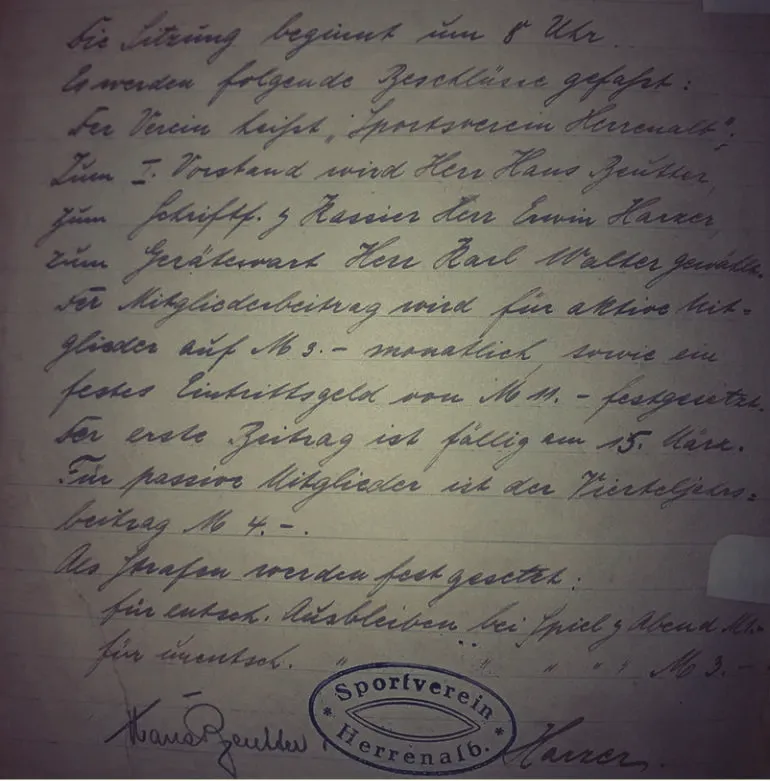 Die Sitzung beginnt um 8 Uhr.
Es werden folgende Beschlüsse gefaßt:
Der Verein heißt „Sportsverein Herrenalb“;
Zum I. Vorstand wird Herr Hans Beutter,
zum Schriftf. & Kassier Herr Erwin Harzer,
zum Gerätewart Herr Karl Walter gewählt.
Der Mitgliederbeitrag wird für aktive Mit=
glieder auf M 3.- monatlich, sowie ein
festes Eintrittsgeld von M 11.- festgesetzt.
Der erste Beitrag ist fällig am 15. März.
Für passive Mitglieder ist der Vierteljahrs=
beitrag M 4.-.
Als Strafen werden festgesetzt:
für entsch. Ausbleiben bei Spiel & Abend M 1.-
für unentsch. " " " " " M 3.-
Hans Beutter.
Sportverein
* *
Herrenalb.
Harzer.